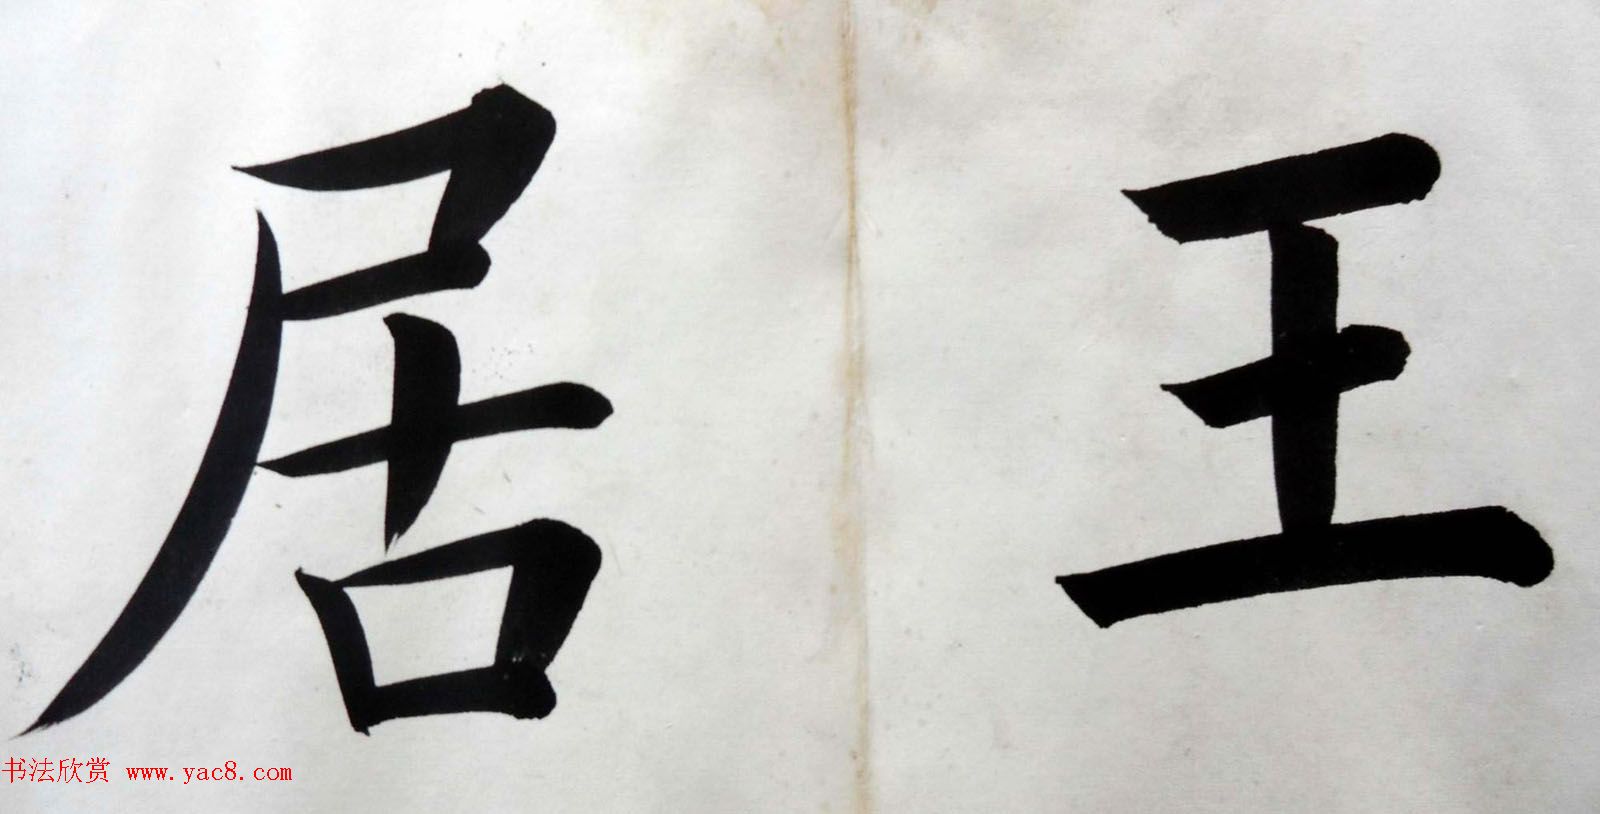 王居
书法欣赏 www.yac8.com